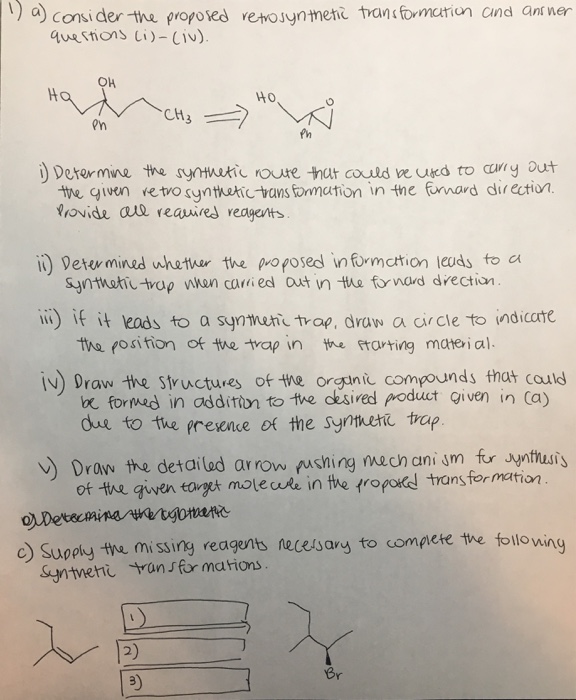 1) a) consider the proposed retrosynthetic transformation and answer
questions (i)-(iv).
HO OH Ph CH3 ⇒ HO O Ph
i) Determine the synthetic route that could be used to carry out
the given retrosynthetic transformation in the forward direction.
Provide all required reagents.
ii) Determined whether the proposed information leads to a
synthetic trap when carried out in the forward direction.
iii) if it leads to a synthetic trap, draw a circle to indicate
the position of the trap in the starting material.
iv) Draw the structures of the organic compounds that could
be formed in addition to the desired product given in (a)
due to the presence of the synthetic trap.
v) Draw the detailed arrow pushing mechanism for synthesis
of the given target molecule in the proposed transformation.
c) Supply the missing reagents necessary to complete the following
synthetic transformations.
1)
2)
3)
Br